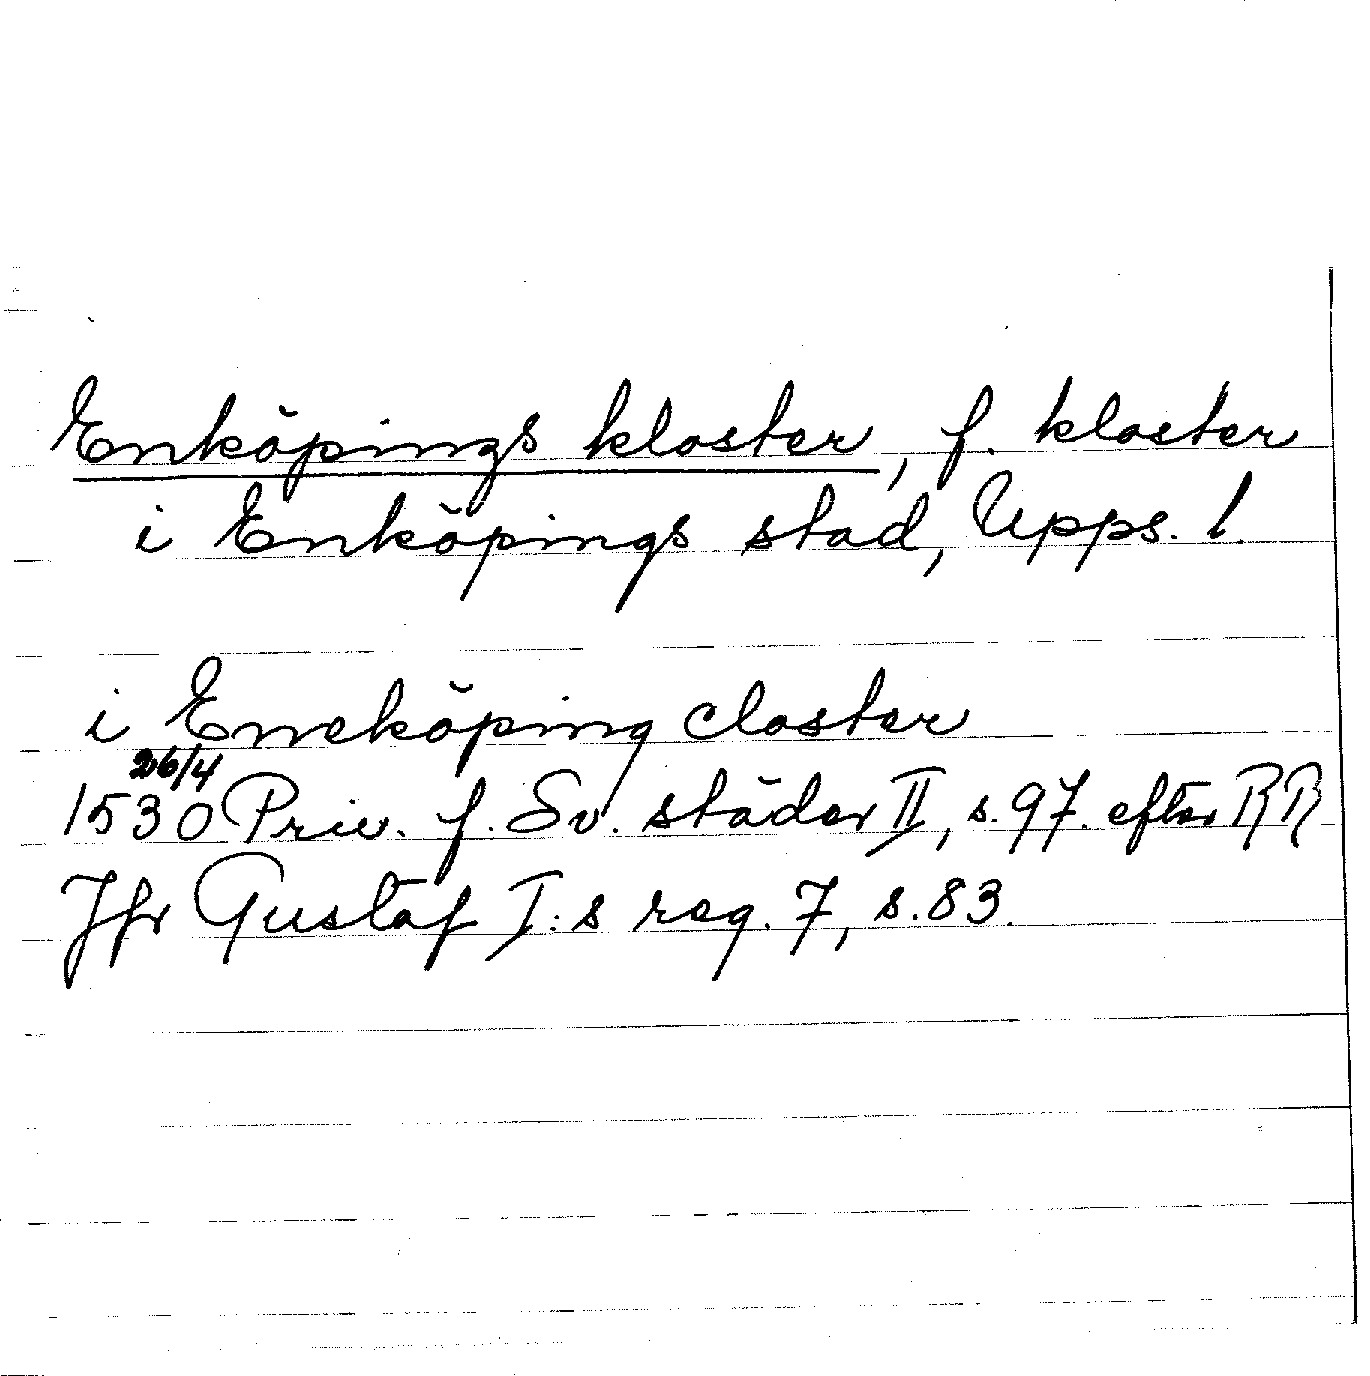 Enköpings kloster, f. kloster
i Enköpings stad, Upps. l.
i Eneköping closter
26/4
1530 Priv. f. Sv. städer II, s. 97. efter RR
Jfr Gustaf I:s reg. 7, s. 83.